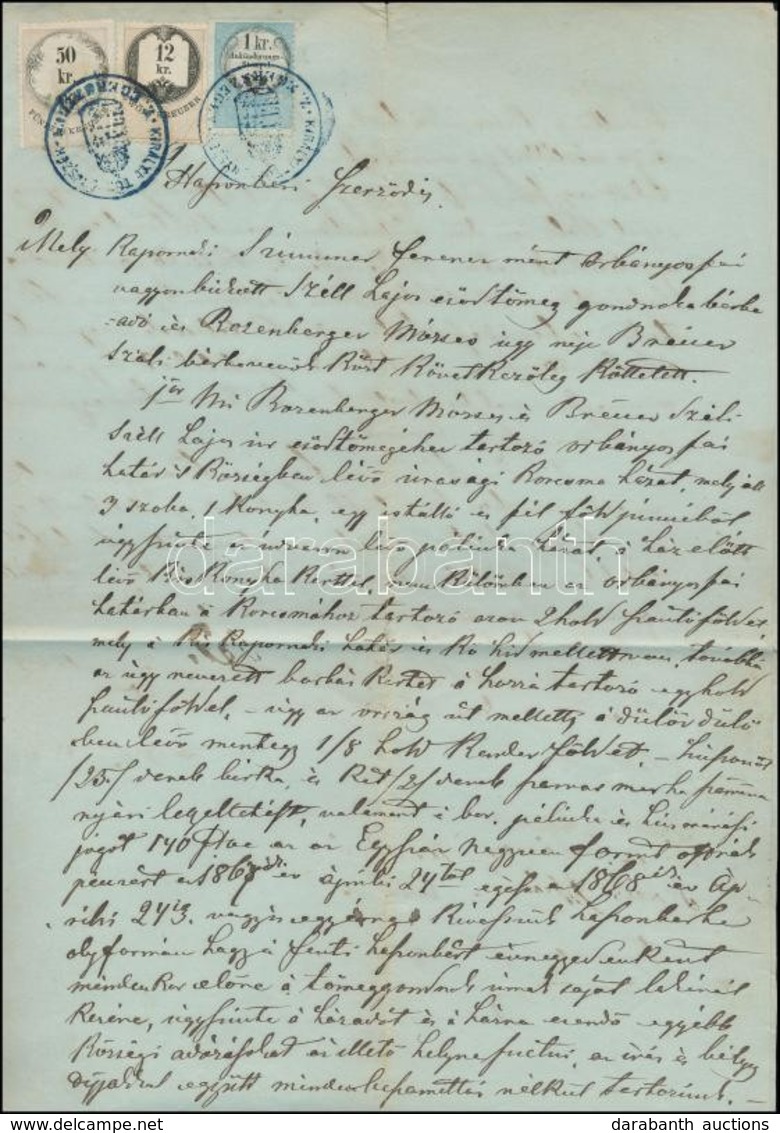 50 kr.
12 kr.
1 kr.
Haszonbéri Szerződés.
Mely Kapornaki Szimmer Ferencz mint orbányosfai
vagyonbukott Széll Lajos csődtömeg gondnoka bérbe
-adó és Rozenberger Mózses úgy neje Breuer
Száli bérbevevők közt következőleg köttetett.
1ör Mi Rozenberger Mózses és Breuer Száli
Széll Lajos úr csődtömegéhez tartozó orbányosfai
határ 's községben lévő urasági korcsma házat, mely áll
3 szoba, 1 konyha, egy istálló és fél föld pinczéből
úgyszinte az udvaron lévő pálinka házat, a ház előtt
lévő kis konyha kerttel, nem különben az orbányosfai
határban a korcsmához tartozó azon 2 hold szántóföldet,
mely a kis kapornaki határ és kő hid mellett van, továbbá
az úgy nevezett kertet a hozzá tartozó egy hold
szántófölddel, - úgy az ország út mellett, a dülőben
lévő mintegy 1/8 hold kender földet, -
/25/ darab birka, és két /2/ darab szarvas marha számára
nyári legeltetést, valamint a bor, pálinka és húsmérési
jogot 140 az az Egyszáz negyven forint osztrák
pénzért az 1867 év április 24től egész az 1868 év Áp-
rilis 24ig, vagyis egy évre kivesszük haszonbérbe
olyformán hogy a fenti haszonbért évnegyedenként
mindenkor előre a tömeggondnok úrnak saját lakánál
kezéhez, úgyszinte a házadót és a házra eső egyébb
községi adózásokat az illető helyre fizetni, az irás és bélyeg
díjakkal együtt minden beszámítás nélkül tartozunk. -
darabanth
darabanth auctions